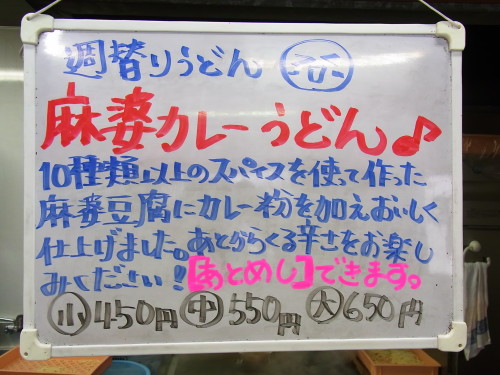 週替りうどん
麻婆カレーうどん♪
10種類以上のスパイスを使って作った
麻婆豆腐にカレー粉を加えおいしく
仕上げました。あとからくる辛さをお楽し
みください！[あとめし]できます。
小450円 中550円 大650円